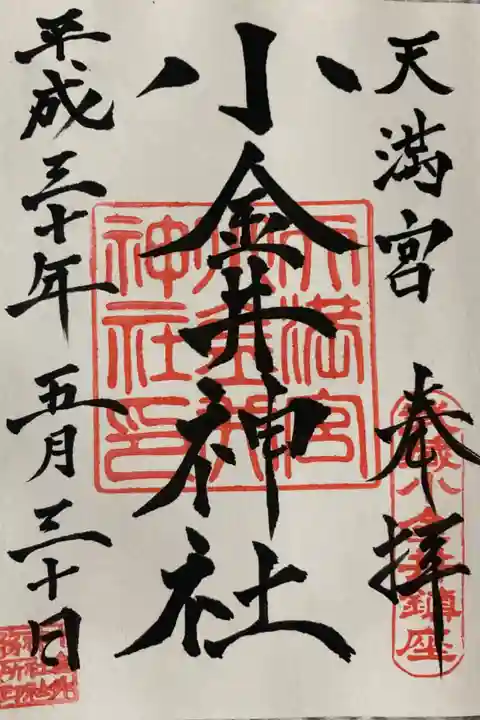 天満宮 奉拝
武蔵小金井鎮座
小金井神社
天満宮
小金井
神社印
平成三十年 五月三十日